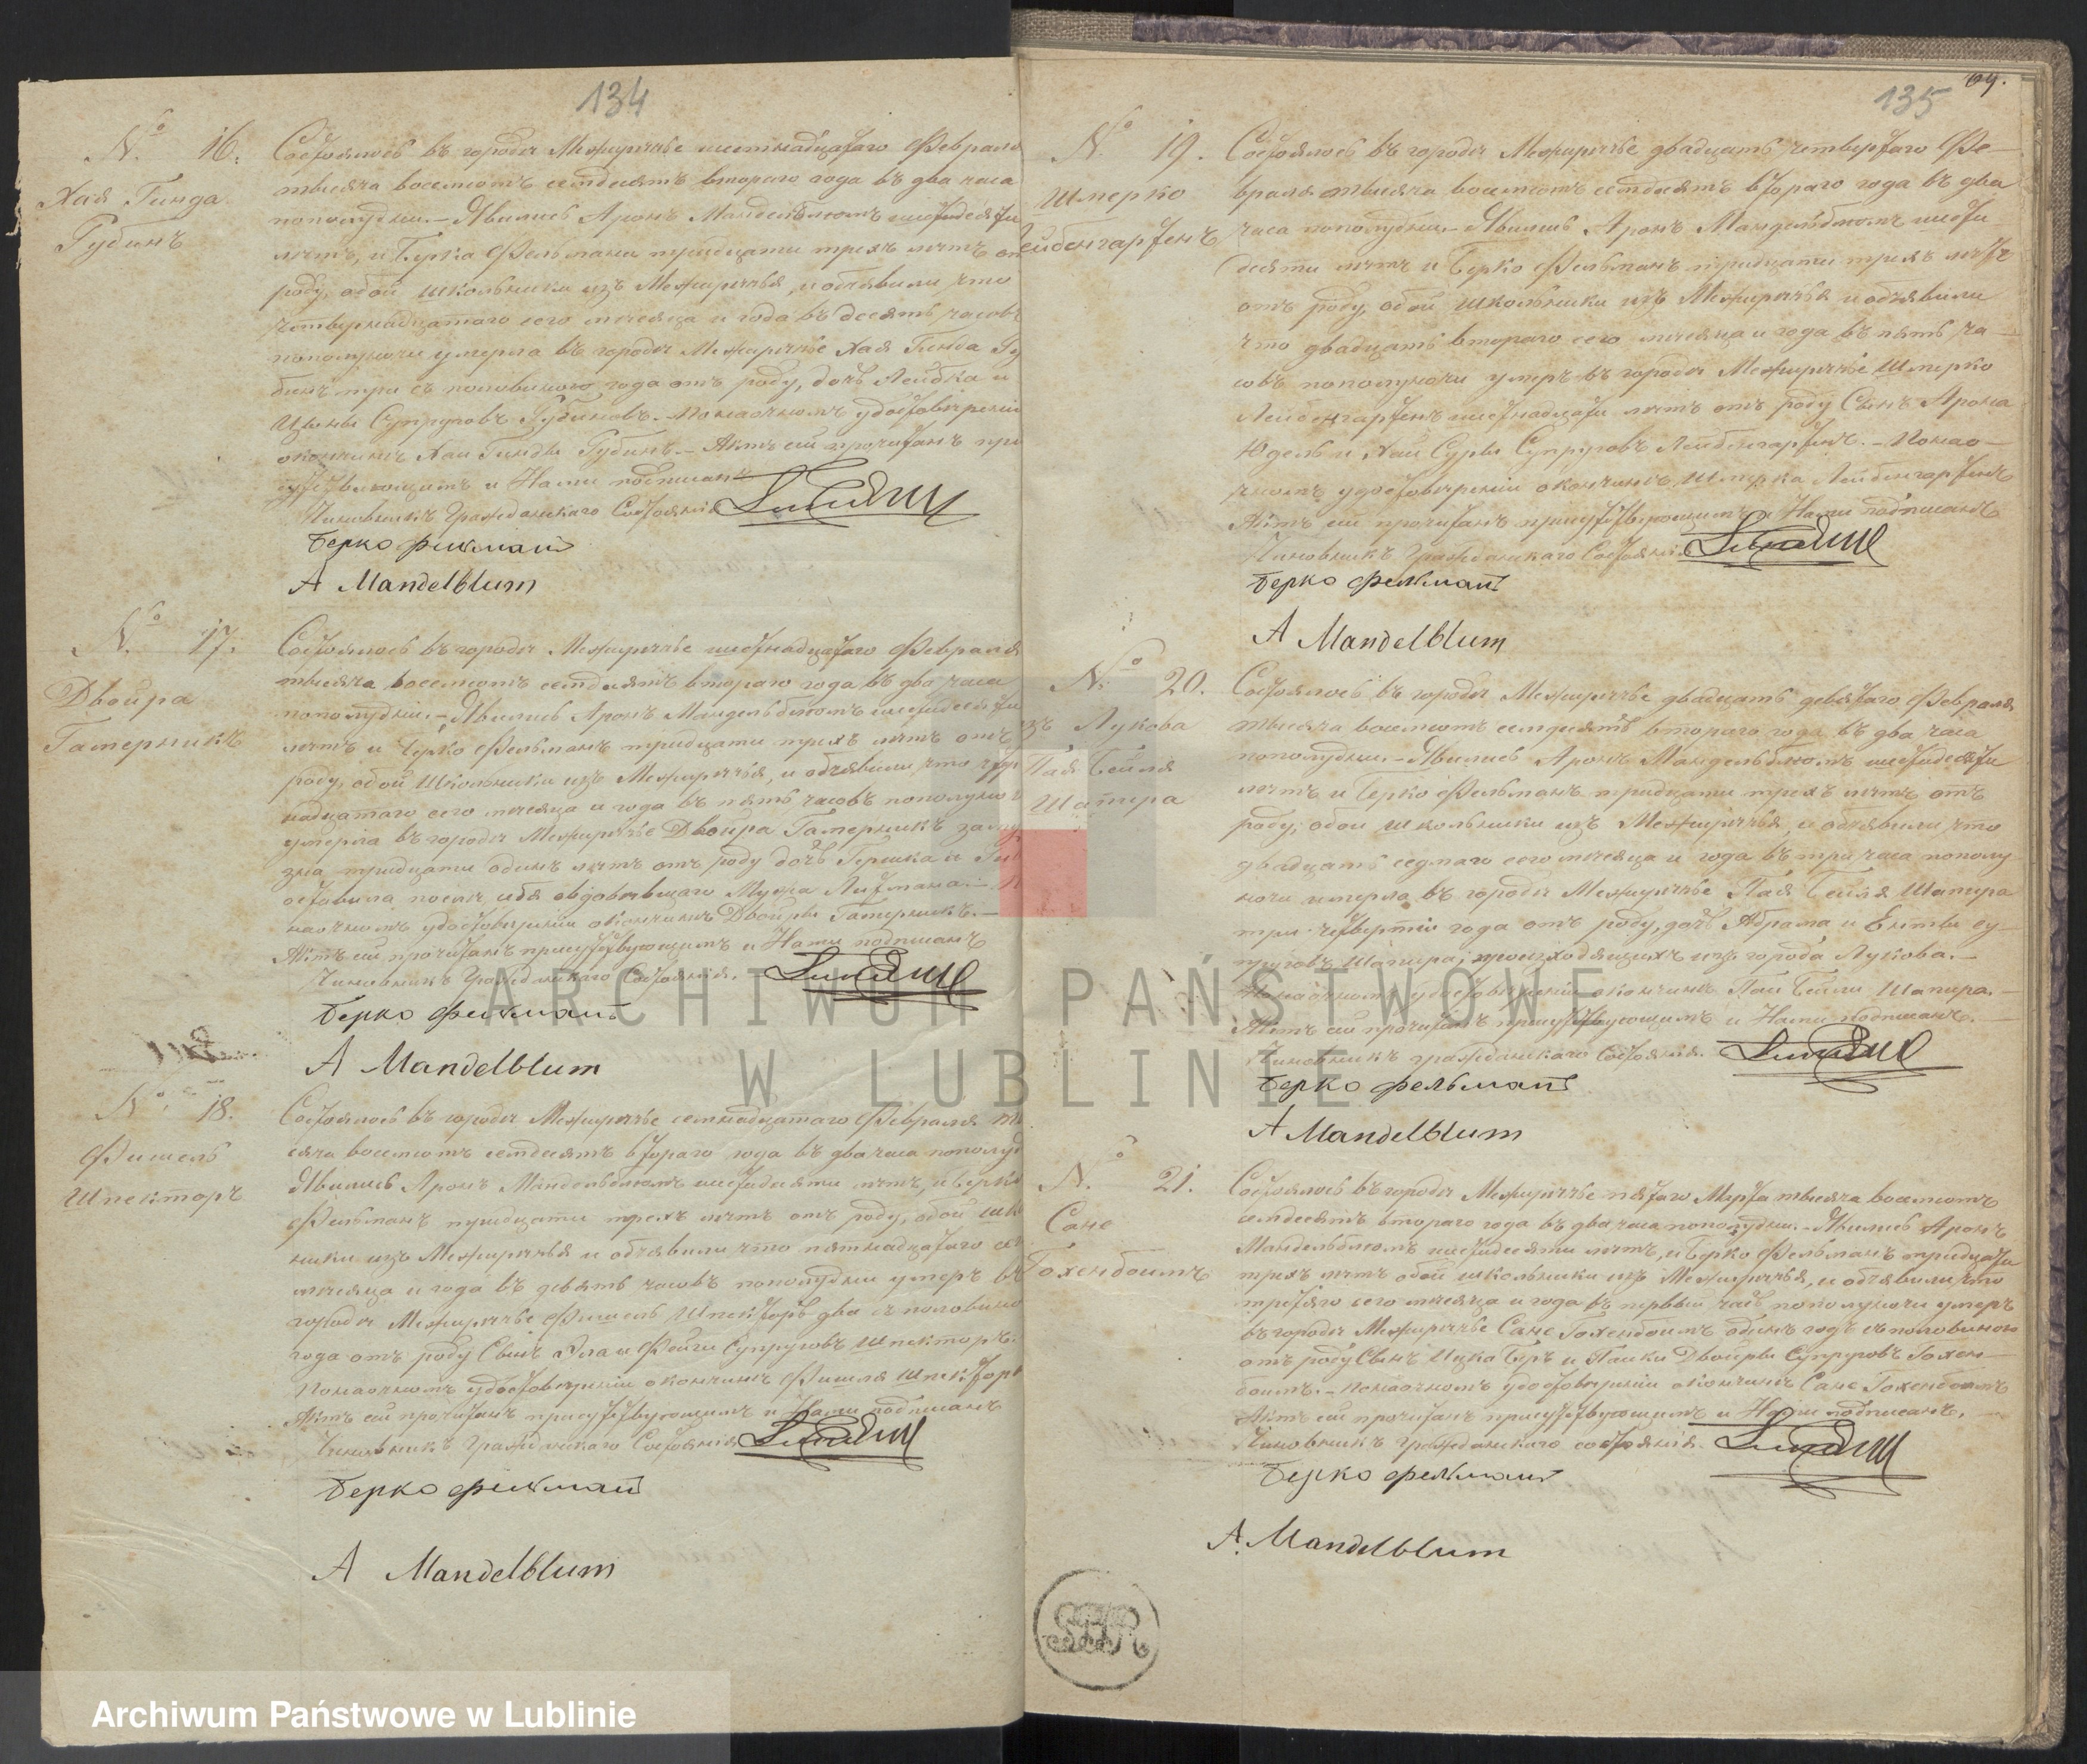 134
№ 16.
Хая Гинда
Губинъ
Состоялось въ городѣ Межирѣчье шестнадцатаго Февраля
тысяча восемсотъ семдесятъ втораго года въ два часа
пополудни. – Явились Аронъ Мандельблюмъ шестидесяти
лѣтъ, и Берка Фельманъ тридцати трехъ лѣтъ отъ
роду, обои школьники изъ Межирѣчья, и объявили, что
четырнадцатаго сего мѣсяца и года въ десять часовъ
пополуночи умерла въ городѣ Межирѣчье Хая Гинда Гу
бинъ три съ половиною года отъ роду, дочь Лейбка и
Цывы Супруговъ Губиновъ. – По наочномъ удостовѣреніи
окончинѣ Хаи Гинды Губинъ. – Актъ сей прочитанъ при
сутствующимъ и Нами подписанъ
Чиновникъ Гражданскаго Состоянія
Берко Фельманъ
A Mandelblum
№ 17.
Двойра
Гатерникъ
Состоялось въ городѣ Межирѣчье шестнадцатаго Февраля
тысяча восемсотъ семдесятъ втораго года въ два часа
пополудни. – Явились Аронъ Мандельблюмъ шестидесяти
лѣтъ и Берко Фельманъ тридцати трехъ лѣтъ отъ
роду, обои Школьники изъ Межирѣчья, и объявили, что
надцатаго сего мѣсяца и года въ пять часовъ пополуно
умерла въ городѣ Межирѣчье Двойра Гатерникъ замуж
зна тридцати одинъ лѣтъ отъ роду дочь Гершка и
оставила послѣ себя овдовѣвшаго Мужа Литмана. –
наочномъ удостовѣреніи окончинѣ Двойры Гатерникъ. –
Актъ сей прочитанъ присутствующимъ и Нами подписанъ
Чиновникъ Гражданскаго Состоянія.
Берко Фельманъ
A Mandelblum
№ 18.
Фишель
Шпекторъ
Состоялось въ городѣ Межирѣчье семнадцатаго Февраля ты
сяча восемсотъ семдесятъ втораго года въ два часа пополуд
Явились Аронъ Мандельблюмъ шестидесяти лѣтъ, и Берко
Фельманъ тридцати трехъ лѣтъ отъ роду, обои шко
ники изъ Межирѣчья и объявили что пятнадцатаго се
мѣсяца и года въ девять часовъ пополудни умеръ въ
городѣ Межирѣчье Фишель Шпекторъ два съ половиною
года отъ роду Сынъ Эла и Фейги Супруговъ Шпекторъ.
По наочномъ удостовѣреніи окончинѣ Фишля Шпектора
Актъ сей прочитанъ присутствующимъ и Нами подписанъ
Чиновникъ Гражданскаго Состоянія
Берко Фельманъ
A Mandelblum
135 69.
№ 19.
Шмерко
Лейбенгартенъ
Состоялось въ городѣ Межирѣчье двадцать четвертаго Фе–
враля тысяча восемсотъ семдесятъ втораго года въ два
часа пополудни. – Явились Аронъ Мандельблюмъ шести
десяти лѣтъ и Берко Фельманъ тридцати трехъ лѣтъ
отъ роду, обои школьники изъ Межирѣчья и объявили
что двадцать втораго сего мѣсяца и года въ пять ча–
совъ пополуночи умеръ въ городѣ Межирѣчье Шмерко
Лейбенгартенъ шестнадцати лѣтъ отъ роду Сынъ Арона
Юдель и Хаи Суры Супруговъ Лейбенгартенъ. – По нао–
чномъ удостовѣреніи окончинѣ Шмерка Лейбенгартенъ
Актъ сей прочитанъ присутствующимъ и Нами подписанъ
Чиновникъ Гражданскаго Состоянія
Берко Фельманъ
A Mandelblum
№ 20.
изъ Лукова
Пая Бейля
Шапира
Состоялось въ городѣ Межирѣчье двадцать девятаго Февраля
тысяча восемсотъ семдесятъ втораго года въ два часа
пополудни. – Явились Аронъ Мандельблюмъ шестидесяти
лѣтъ и Берко Фельманъ тридцати трехъ лѣтъ отъ
роду, обои школьники изъ Межирѣчья, и объявили что
двадцать седмаго сего мѣсяца и года въ три часа пополу
ночи умерла въ городѣ Межирѣчье Пая Бейля Шапира
три четверти года отъ роду, дочь Абрама и Ентвы су–
пруговъ Шапира, происходящихъ изъ города Лукова. –
По наочномъ удостовѣреніи окончинѣ Паи Бейли Шапира. –
Актъ сей прочитанъ присутствующимъ и Нами подписанъ.
Чиновникъ гражданскаго Состоянія.
Берко Фельманъ
A Mandelblum
№ 21.
Сане
Гохенбоимъ
Состоялось въ городѣ Межирѣчье пятаго Марта тысяча восемсотъ
семдесятъ втораго года въ два часа пополудни. – Явились Аронъ
Мандельблюмъ шестидесяти лѣтъ, и Берко Фельманъ тридцати
трехъ лѣтъ обои школьники изъ Межирѣчья, и объявили что
третьяго сего мѣсяца и года въ первый часъ пополуночи умеръ
въ городѣ Межирѣчье Сане Гохенбоимъ одинъ годъ съ половиною
отъ роду Сынъ Ицка Беръ и Двойры Супруговъ Гохен–
боимъ. – По наочномъ удостовѣреніи окончинѣ Сане Гохенбоимъ
Актъ сей прочитанъ присутствующимъ и Нами подписанъ.
Чиновникъ гражданскаго состоянія.
Берко Фельманъ
A. Mandelblum
ARCHIWUM PAŃSTWOWE
W LUBLINIE
Archiwum Państwowe w Lublinie